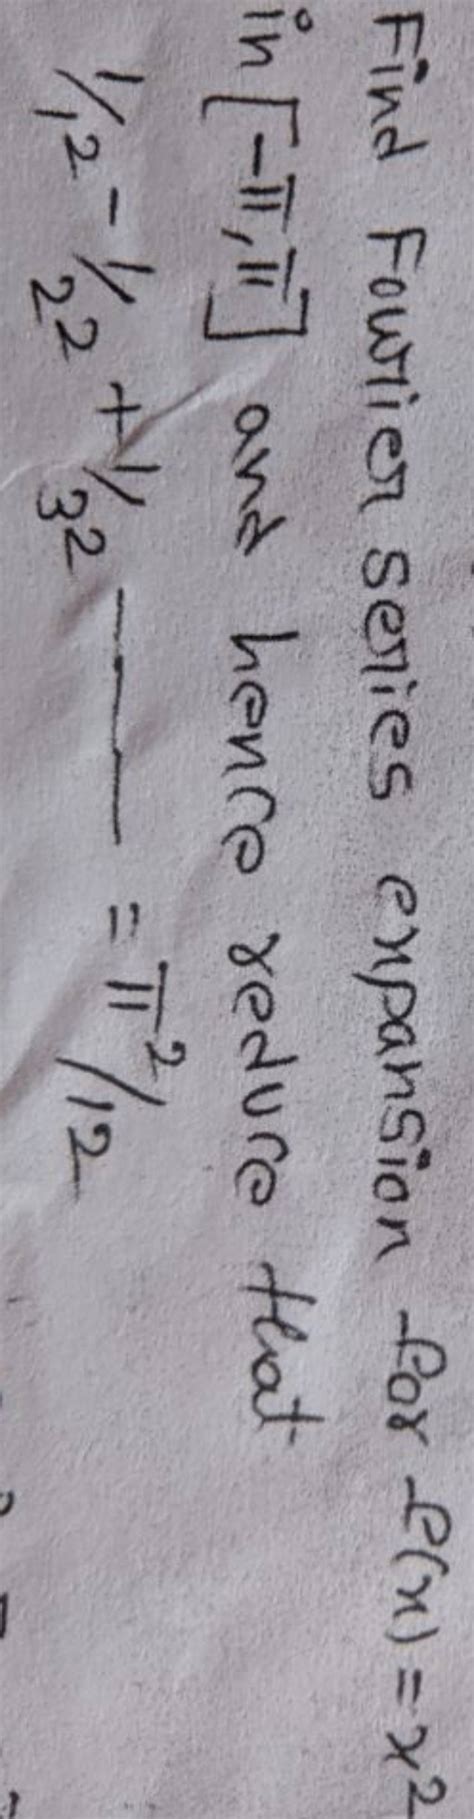 Find Fourier series expansion for f(x) = x²
in [-π, π] and hence reduce that
1/1² - 1/2² + 1/3² —— = π²/12